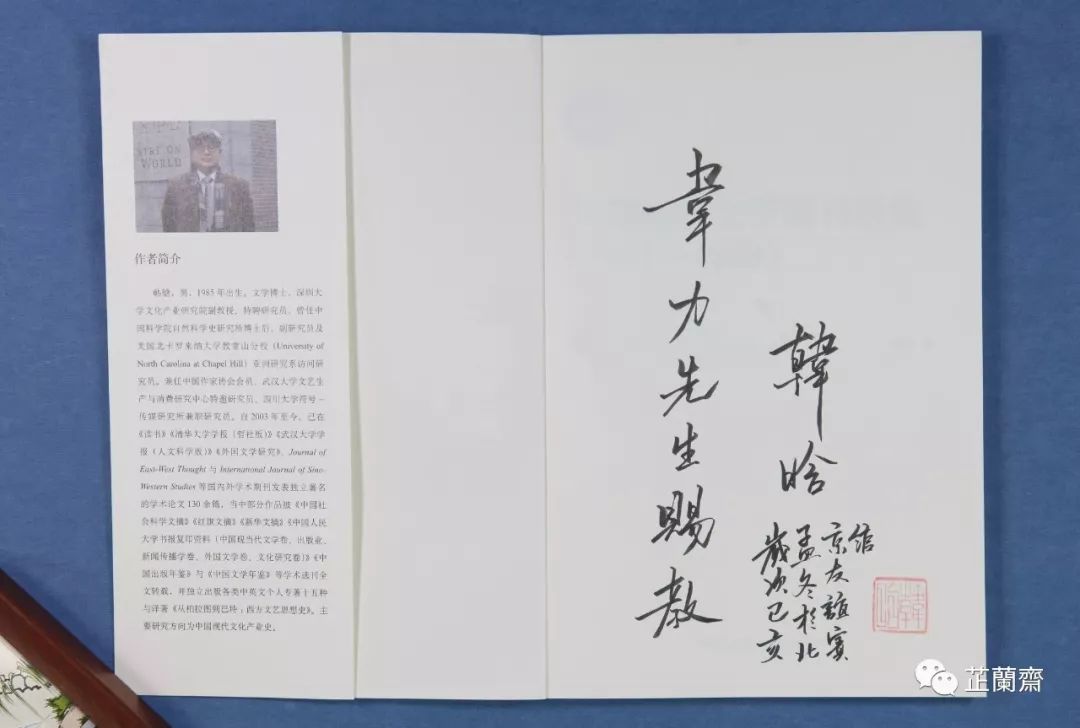 WORLD
作者简介
韩晗，男，1985年出生。文学博士，深圳大
学文化产业研究院副教授，特聘研究员，曾任中
国科学院自然科学史研究所博士后、副研究员及
美国北卡罗来纳大学教堂山分校（University of
North Carolina at Chapel Hill）亚洲研究系访问研
究员。兼任中国作家协会会员、武汉大学文艺生
产与消费研究中心特邀研究员、四川大学符号－
传媒研究所兼职研究员。自2003年至今，已在
《读书》《清华大学学报（哲社版）》《武汉大学学
报（人文科学版）》《外国文学研究》、Journal of
East-West Thought 与 International Journal of Sino-
Western Studies 等国内外学术期刊发表独立署名
的学术论文130余篇，当中部分作品被《中国社
会科学文摘》《红旗文摘》《新华文摘》《中国人民
大学书报复印资料（中国现当代文学卷、出版业、
新闻传播学卷、外国文学卷、文化研究卷）》《中
国出版年鉴》与《中国文学年鉴》等学术选刊全
文转载，并独立出版各类中英文个人专著十五种
与译著《从柏拉图到巴特：西方文艺思想史》。主
要研究方向为中国现代文化产业史。
韋力先生賜教
韓晗
歲次己亥
孟冬於北
京友誼賓
館
芷蘭齋